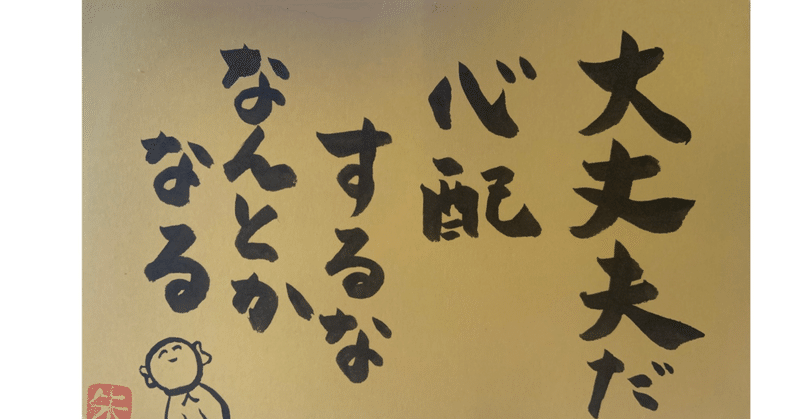 大丈夫だ
心配
するな
なんとか
なる
朱